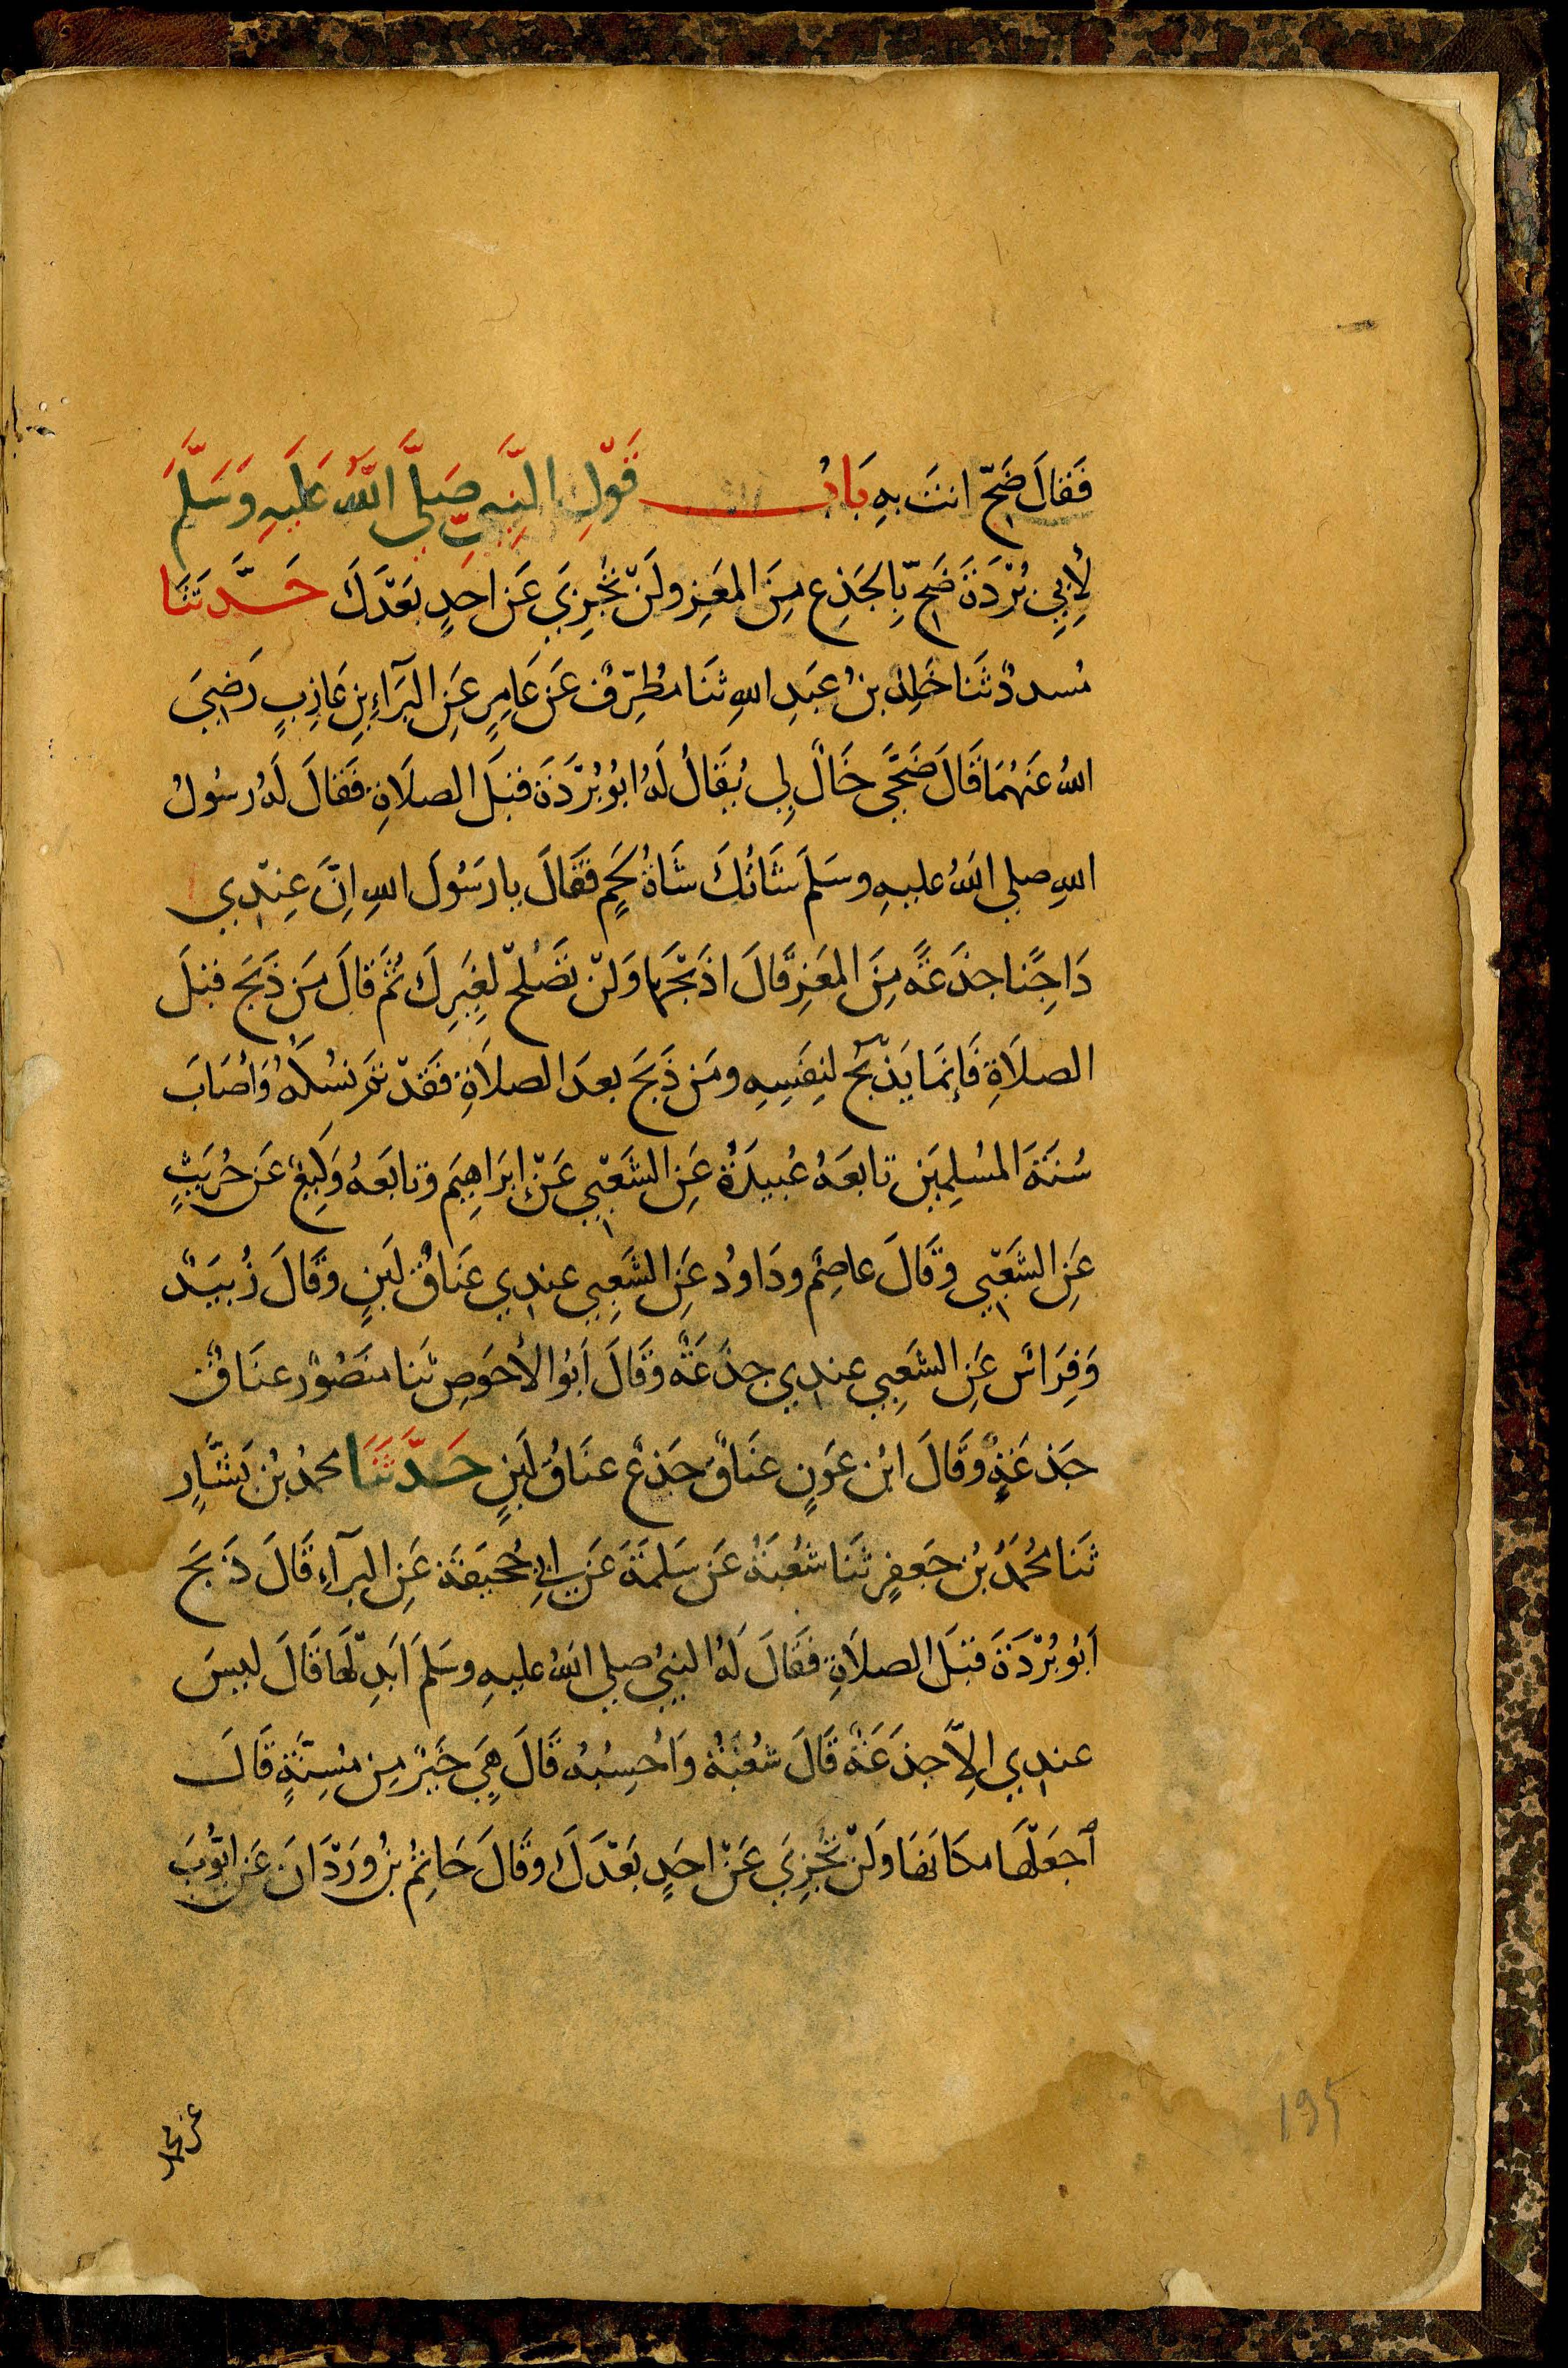 فَقالَ ضَحِّ انتَ بِهِ بَابُ قَوْلِ النَّبِيِّ صَلَّى اللَّهُ عَلَيهِ وَسَلَّمَ
لِأَبِي بُرْدَةَ ضَحِّ بِالجَذَعِ مِنَ المَعَزِ ولَنْ تَجْزِيَ عَن احَدٍ بَعْدَكَ حَدَّثَنَا
مُسددٌ ثَنَا خَلِدُ بنُ عَبدِ اللهِ ثَنَا مُطَرِّفٌ عَن عَامِرٍ عَنِ البَرَآءِ بنِ عَازِبٍ رَضِيَ
اللهُ عَنهُمَا قَالَ ضَحَّى خَالٌ لِي يُقَالُ لَهُ ابُو بُرْدَةَ قبلَ الصلَاةِ فَقالَ لَهُ رسُولُ
اللهِ صلي اللهُ عليهِ وسَلَمَ شَاتُكَ شَاةُ لَحمٍ فَقَالَ يا رَسُولَ اللهِ اِنَّ عِنْدِي
دَاجِنًا جذَعَةً مِنَ المَعَزِ قَالَ اذبَحْهَا وَلَنْ تَصْلحَ لغَيرِكَ ثُمَّ قالَ مَن ذَبَحَ قبلَ
الصلَاةِ فَإِنمَا يَذْبَحُ لنَفسِهِ ومَن ذَبَحَ بعدَ الصلَاةِ فَقَدْ تمَّ نسُكُهُ وَأَصَابَ
سُنَةَ المسُلِمِينَ تابعَهُ عُبيدَةُ عَنِ الشَعْبِي عَنْ إبرَاهِيمَ وتابَعهُ وَكِيعٌ عَن حُرَيثٍ
عَنِ الشَعْبِي وقَالَ عاصِمٌ ودَاودُ عَنِ الشَعبِي عندِي عنَاقُ لَبنٍ وقَالَ زُبيَدٌ
وَفِرَاسٌ عَنِ الشَعبِي عندِي جذَعَةٌ وقَالَ اَبُو الأَحوَصِ ثنا منصُورٌ عنَاقٌ
جَذعَةٌ وقَالَ ابن عَونٍ عنَاقٌ جَذعٌ عنَاقُ لَبَنٍ حَدَّثَنَا محمدُ بن بَشَّارٍ
ثَنا مُحُمَدُ بن جَعفرٍ ثَنَا شعُبَةُ عَن سَلمَةَ عَن ابِي جُحيفَةَ عَنِ البرآءِ قَالَ ذَبَحَ
اَبُو بُرْدَةَ قَبلَ الصلَاةِ فقَالَ لَهُ النبيُ صلي اللهُ عليهِ وسَلَمَ اَبدِلْهَا قَالَ ليسَ
عندِي اِلاَّ جذَعَةٌ قَالَ شعُبَةُ وَاحسِبهُ قَالَ هِيَ خَيرٌ مِن مُسِنَّةٍ قَالَ
اَجعَلْهَا مكَانَهَا وَلَنْ تَجْزِيَ عَنْ احَدٍ بَعْدَكَ وقَالَ حَاتِمُ بنُ وَرْدَانَ عَن ايّوبَ
عن محمد
195